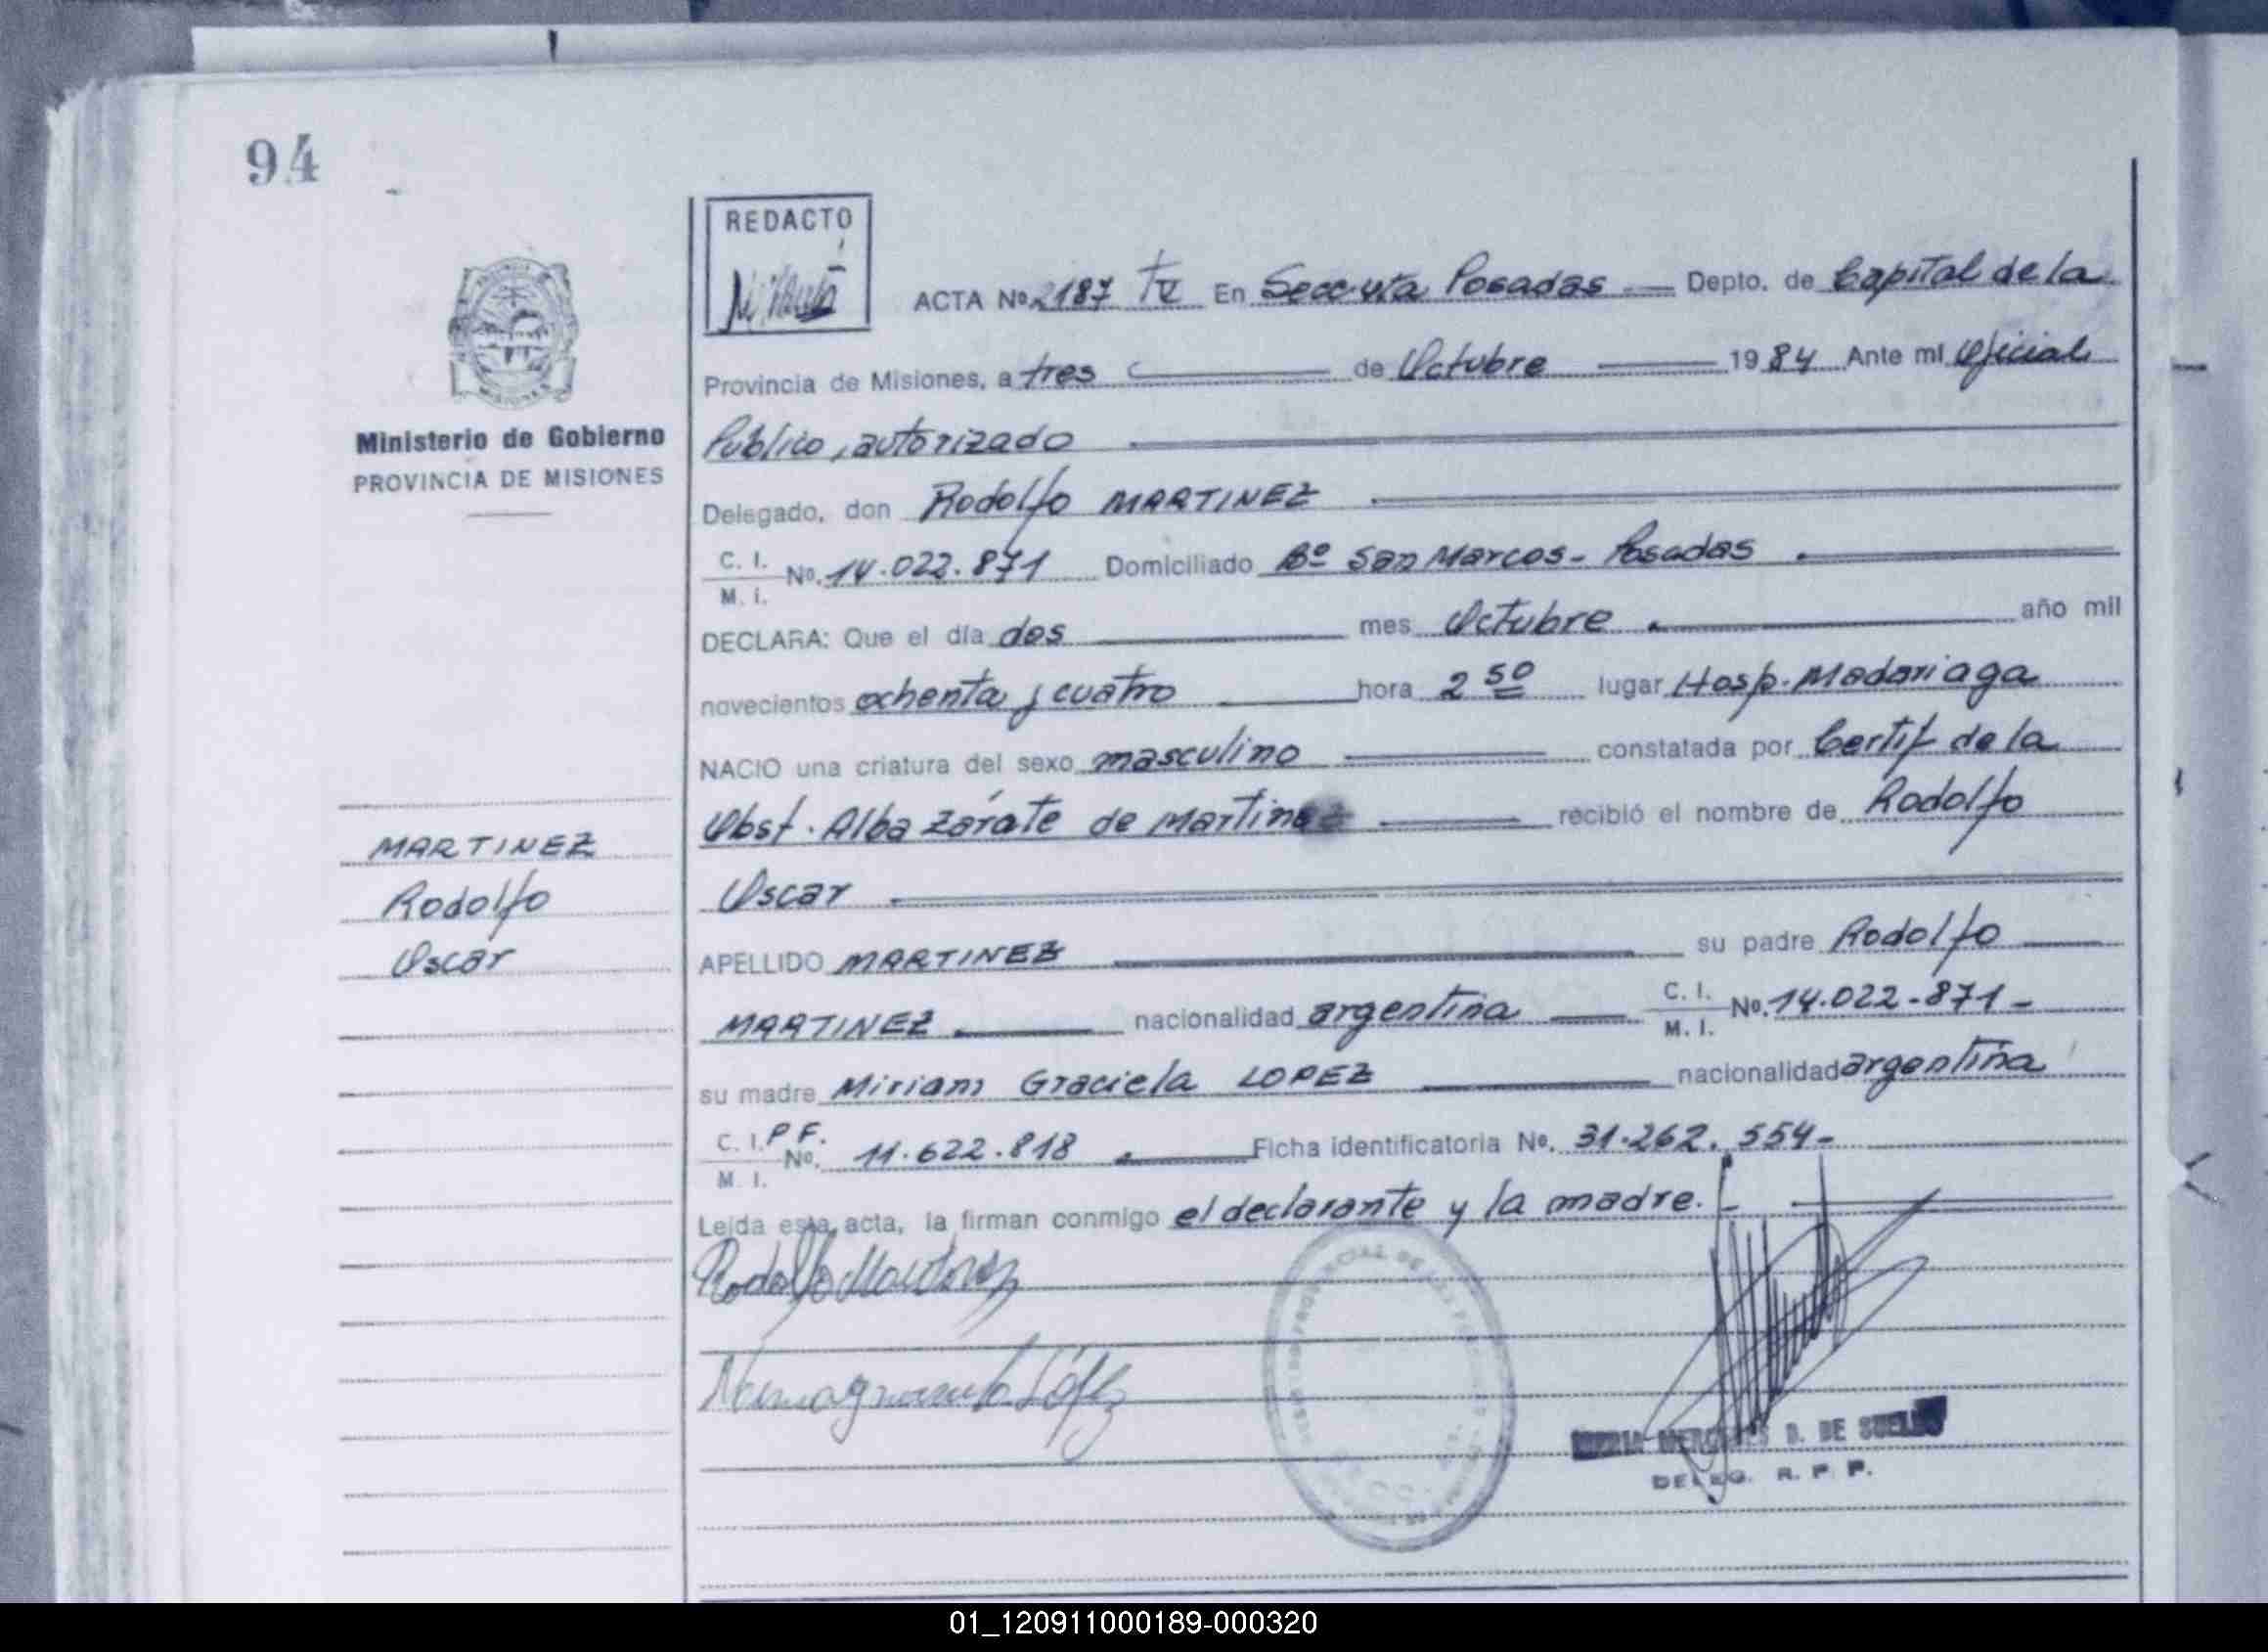 94
REDACTO
ACTA Nº 2187 En Secc. Posadas Depto. de Capital de la
Provincia de Misiones, a tres de Octubre 1984 Ante mí Oficial
Ministerio de Gobierno
PROVINCIA DE MISIONES
Publico, autorizado
Delegado, don Rodolfo MARTINEZ
C. I.
M. I. Nº. 14.022.871 Domiciliado Bº San Marcos - Posadas
DECLARA: Que el día dos mes Octubre año mil
novecientos ochenta y cuatro hora 2 50 lugar Hosp. Madariaga
NACIO una criatura del sexo masculino constatada por Certif de la
Obst. Alba Zárate de Martinez recibió el nombre de Rodolfo
Oscar
MARTINEZ
Rodolfo
Oscar
APELLIDO MARTINEZ su padre Rodolfo
MARTINEZ nacionalidad argentina C. I.
M. I. Nº. 14.022.871 -
su madre Miriam Graciela LOPEZ nacionalidad argentina
C. I. P F.
M. I. Nº. 11.622.818 Ficha identificatoria Nº. 31.262.554 -
Leida esta acta, la firman conmigo el declarante y la madre. -
Rodolfo Martinez
López
MARIA MERCEDES D. DE SUELDO
DELEG. R. P. P.
01_120911000189-000320